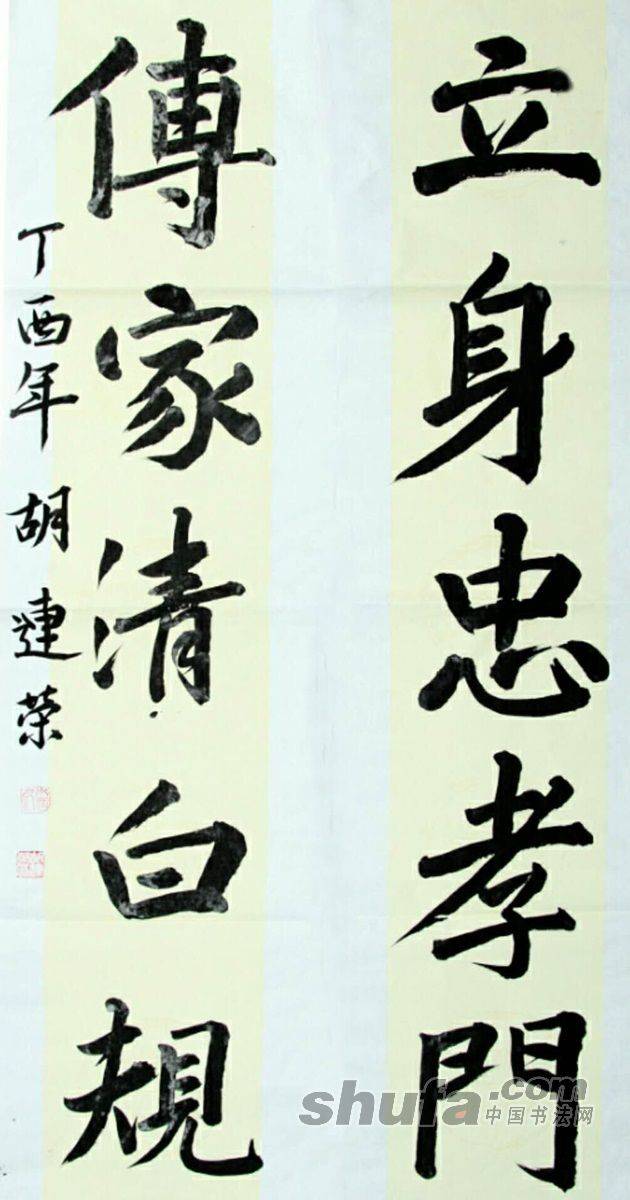 立身忠孝門
傳家清白規
丁酉年 胡連榮
shufa.com
中国书法网